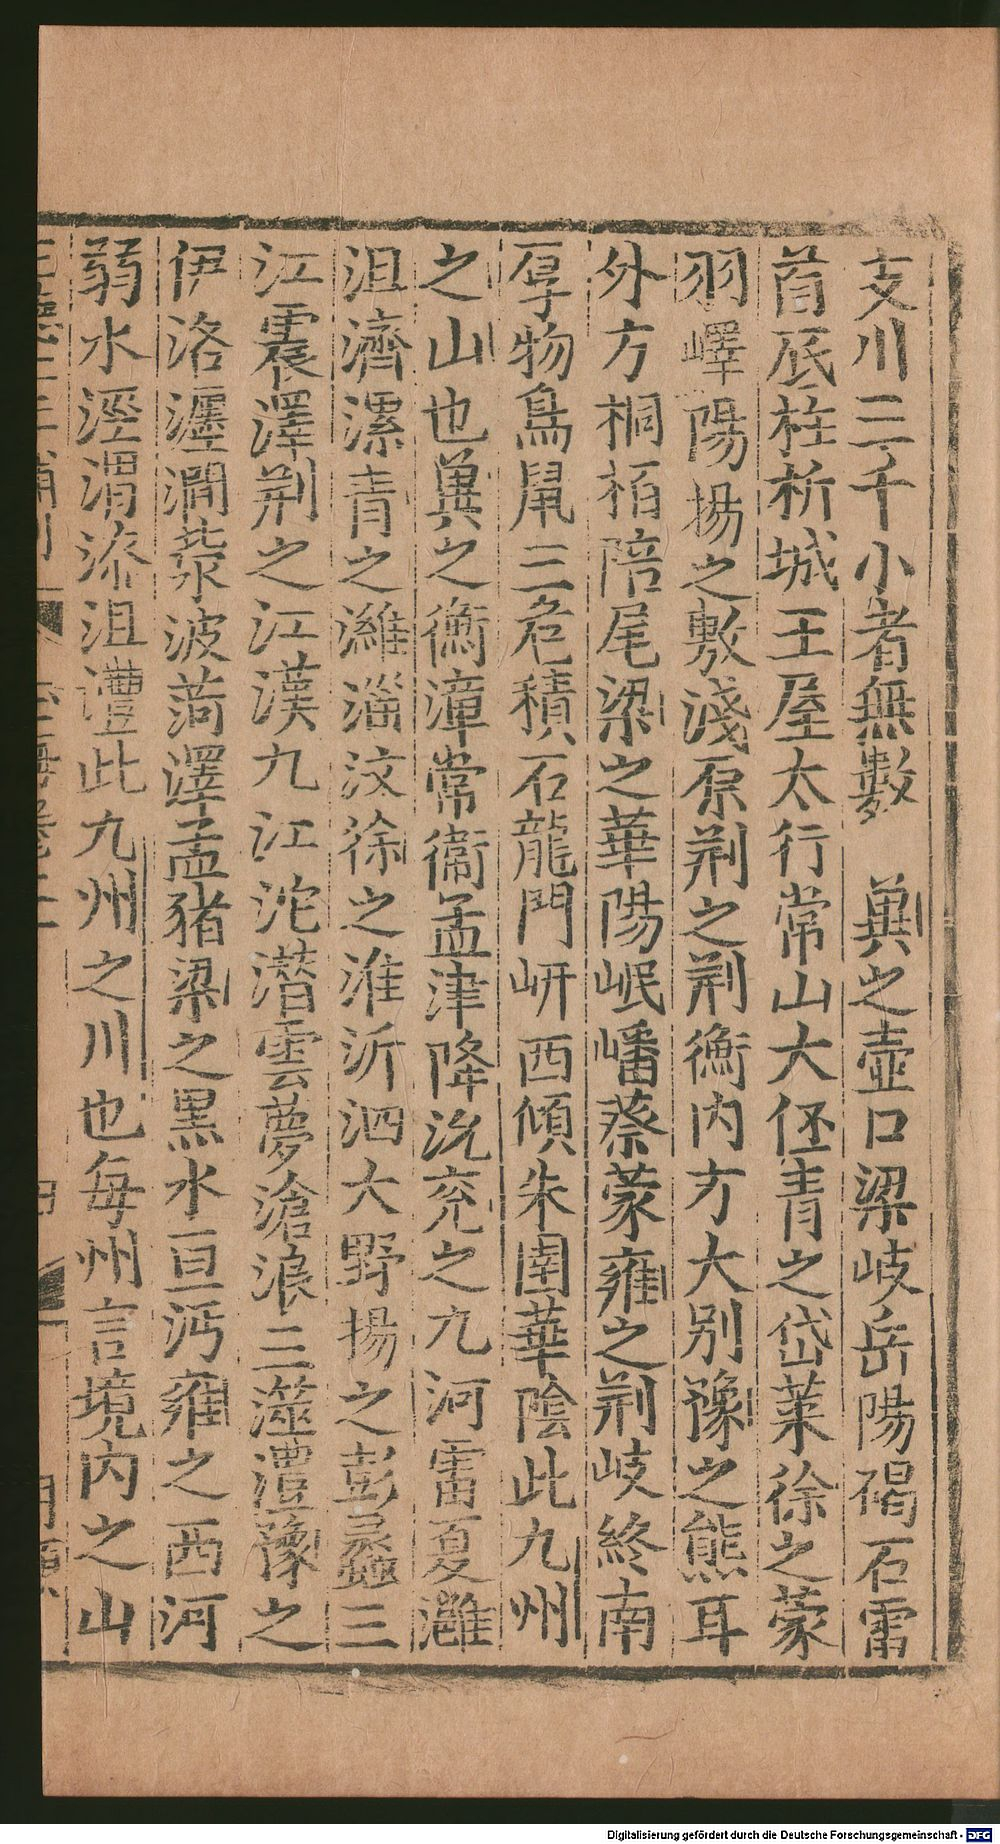 支川三千小者無數　冀之壺口梁岐岳陽碣石雷
首底柱析城王屋太行常山大伾青之岱萊徐之蒙
羽嶧陽揚之敷淺原荆之荆衡内方大别豫之熊耳
外方桐栢陪尾梁之華陽岷嶓蔡蒙雍之荆岐終南
厚物鳥鼠三危積石龍門岍西傾朱圉華隂此九州
之山也冀之衡漳常衞孟津降沇兖之九河雷夏灉
沮濟漯青之濰淄汶徐之淮沂泗大野揚之彭蠡三
江震澤荆之江漢九江沱潜雲夢滄浪三澨澧豫之
伊洛瀍澗滎波菏澤孟猪梁之黒水亘沔雍之西河
弱水涇渭漆沮灃此九州之川也毎州言境内之山
Digitalisierung gefördert durch die Deutsche Forschungsgemeinschaft - DFG